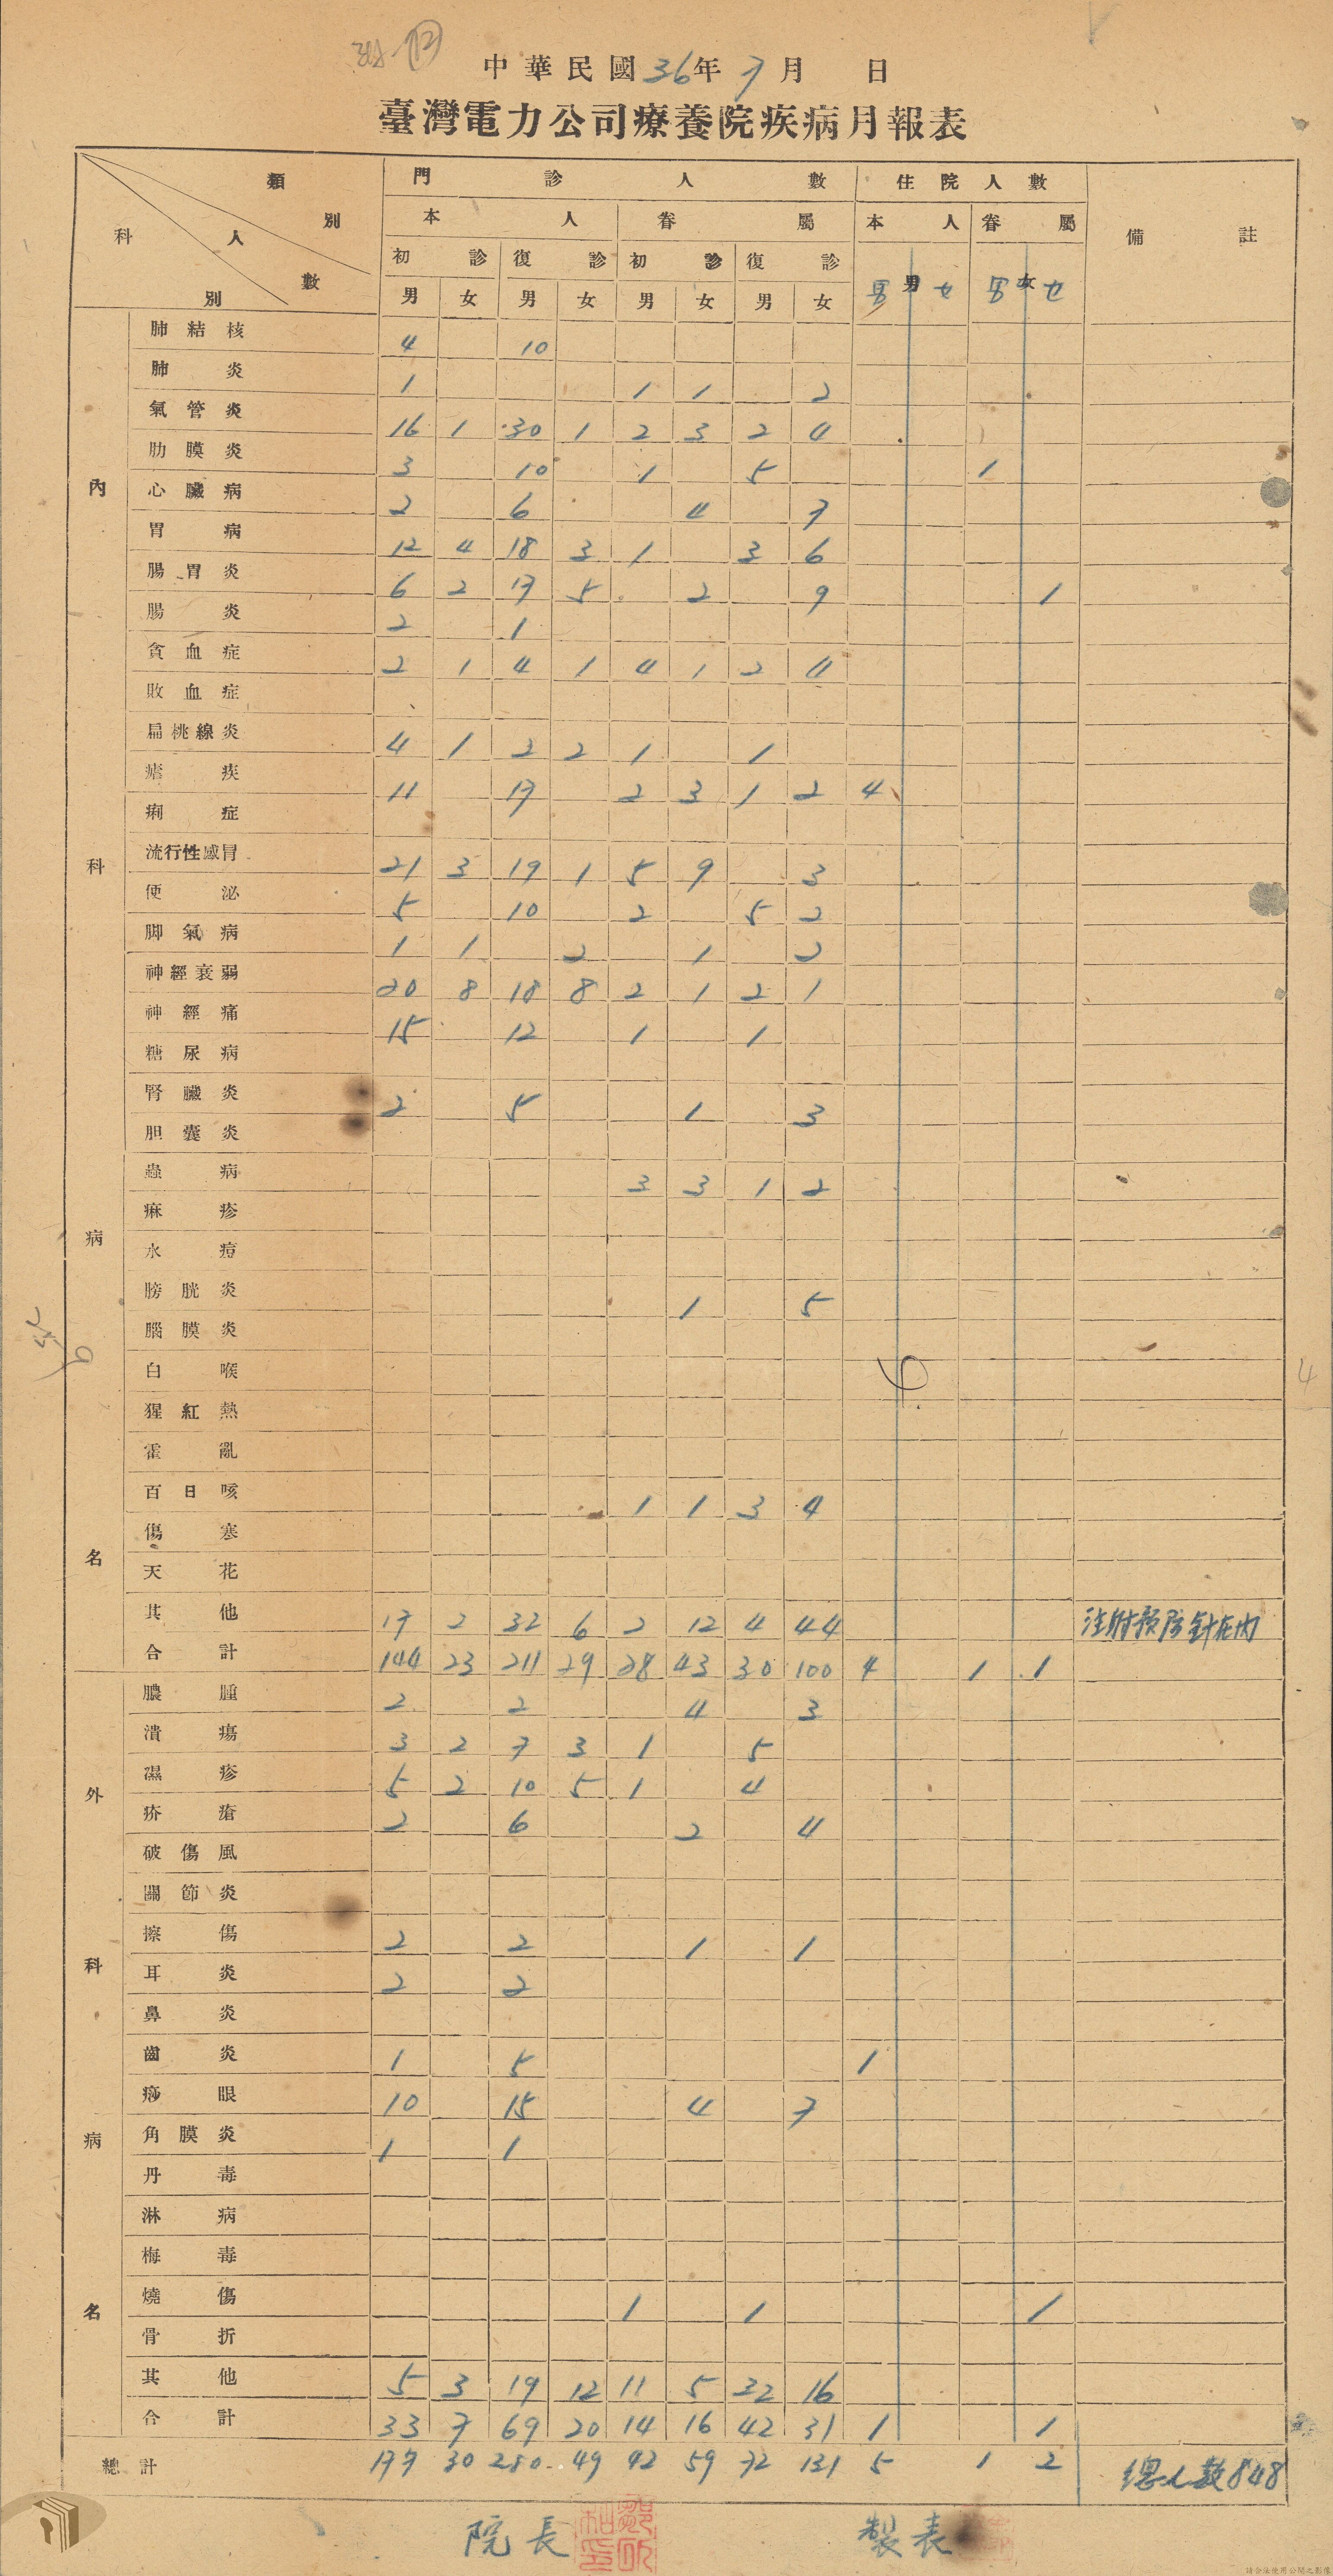 中華民國36年7月 日
臺灣電力公司療養院疾病月報表
類別 人數 科別 門診人數 住院人數 備註
本人 眷屬 本人 眷屬
初診 復診 初診 復診
男 女 男 女 男 女 男 女 男 男 女 男 女 女
內科病名
肺結核 4 10
肺炎 1 1 1 2
氣管炎 16 1 30 1 2 3 2 4
肋膜炎 3 10 1 5 1
心臟病 2 6 4 7
胃病 12 4 18 3 1 3 6
腸胃炎 6 2 17 5 2 9 1
腸炎 2 1
貧血症 2 1 4 1 4 1 2 4
敗血症
扁桃線炎 4 1 2 2 1 1
瘧疾 11 17 2 3 1 2 4
痢症
流行性感冒 21 3 19 1 5 9 3
便泌 5 10 2 5 2
脚氣病 1 1 2 1 2
神經衰弱 20 8 18 8 2 1 2 1
神經痛 15 12 1 1
糖尿病
腎臟炎 2 5 1 3
胆囊炎
蟲病 3 3 1 2
麻疹
水痘
膀胱炎 1 5
腦膜炎
白喉
猩紅熱
霍亂
百日咳 1 1 3 4
傷寒
天花
其他 17 2 32 6 2 12 4 44 注射預防針在內
合計 144 23 211 29 28 43 30 100 4 1 1
外科病名
膿腫 2 2 4 3
潰瘍 3 2 7 3 1 5
濕疹 5 2 10 5 1 4
疥瘡 2 6 2 4
破傷風
關節炎
擦傷 2 2 1 1
耳炎 2 2
鼻炎
齒炎 1 5 1
痧眼 10 15 4 7
角膜炎 1 1
丹毒
淋病
梅毒
燒傷 1 1 1
骨折
其他 5 3 19 12 11 5 32 16
合計 33 7 69 20 14 16 42 31 1 1
總計 177 30 280 49 42 59 72 131 5 1 2 總人數848
院長 製表
請合法使用公開之影像